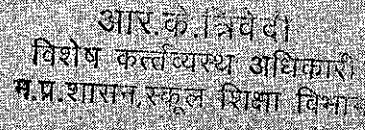 आर.के.त्रिवेदी
विशेष कर्त्तव्यस्थ अधिकारी
म.प्र.शासन,स्कूल शिक्षा विभाग